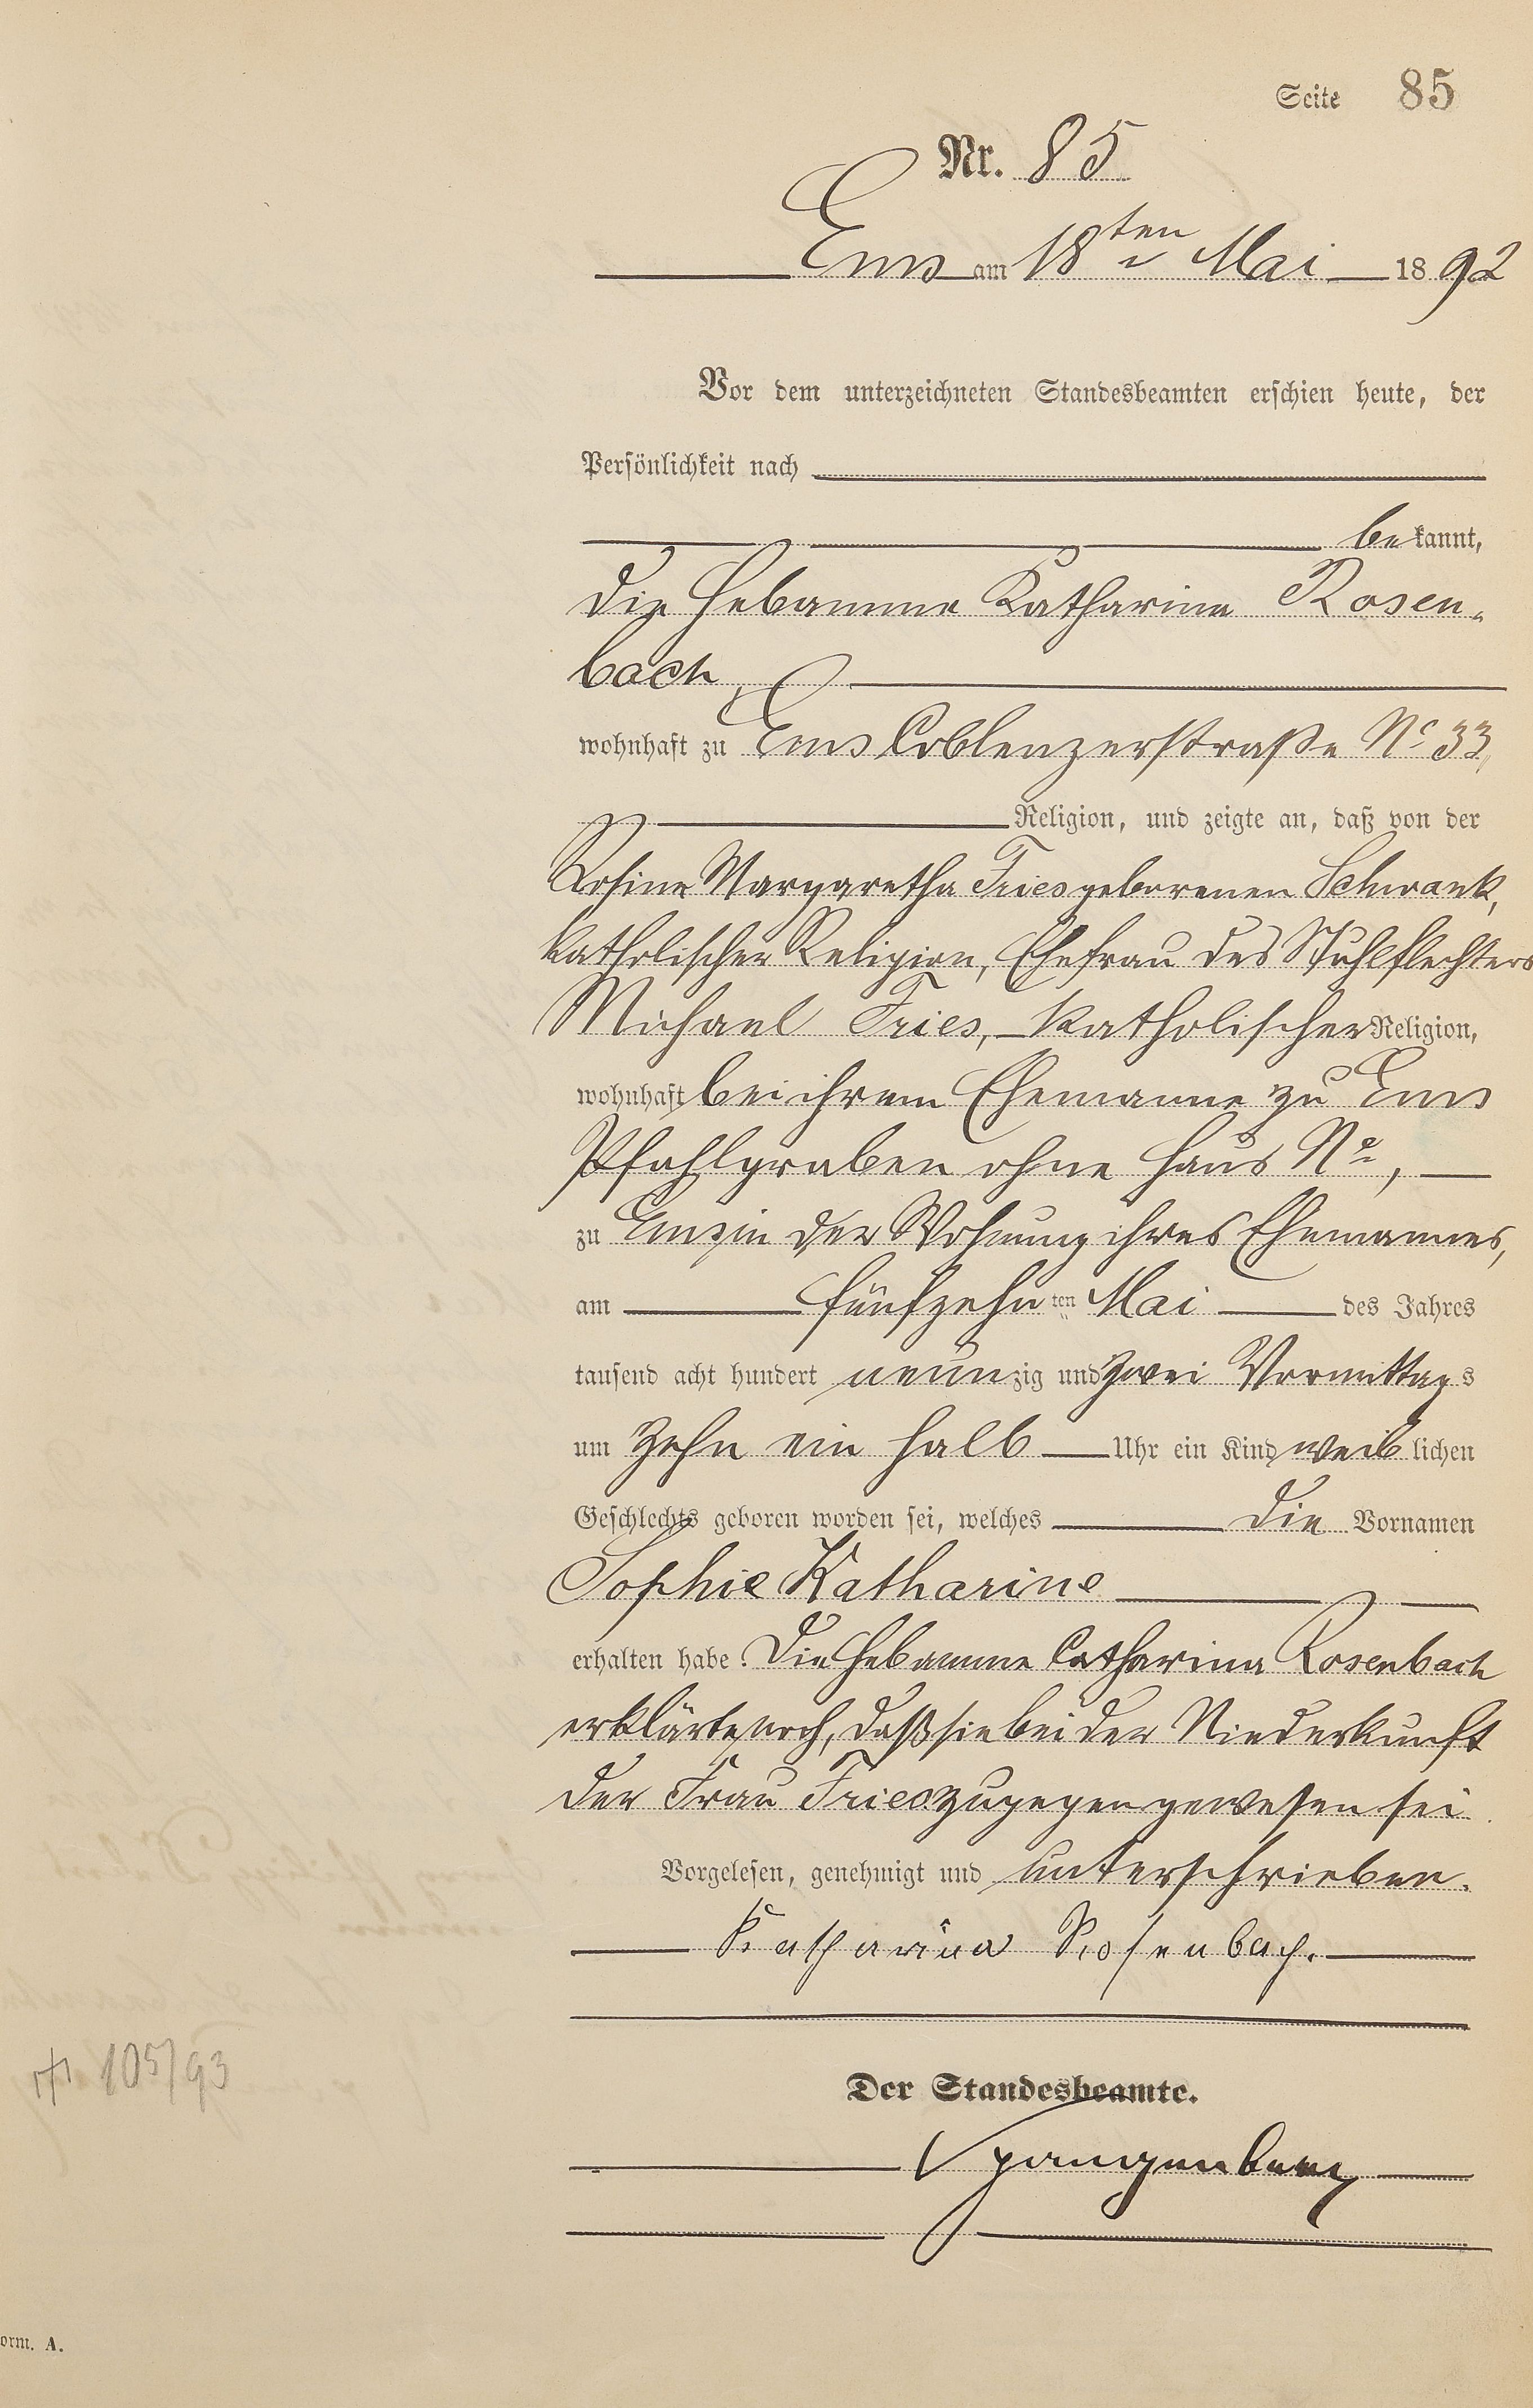 Seite 85
Nr. 85
Ems am 18ten Mai 1892
Vor dem unterzeichneten Standesbeamten erschien heute, der
Persönlichkeit nach
bekannt,
die Hebamme Katharina Rosen-
bach,
wohnhaft zu Ems Coblenzerstraße No 33,
Religion, und zeigte an, daß von der
Rosine Margaretha Fries geborenen Schwank,
katholischer Religion, Ehefrau des Stuhlflechters
Michael Fries, katholischer Religion,
wohnhaft bei ihrem Ehemanne zu Ems
Pfahlgraben ohne Haus No,
zu Ems in der Wohnung ihres Ehemannes,
am fünfzehnten Mai des Jahres
tausend acht hundert neunzig und zwei Vormittags
um zehn ein halb Uhr ein Kind weiblichen
Geschlechts geboren worden sei, welches die Vornamen
Sophie Katharine
erhalten habe. Die Hebamme Catharina Rosenbach
erklärte noch, daß sie bei der Niederkunft
der Frau Fries zugegen gewesen sei
Vorgelesen, genehmigt und unterschrieben.
Katharina Rosenbach.
105/93
Der Standesbeamte.
Spangenberg
orm. A.